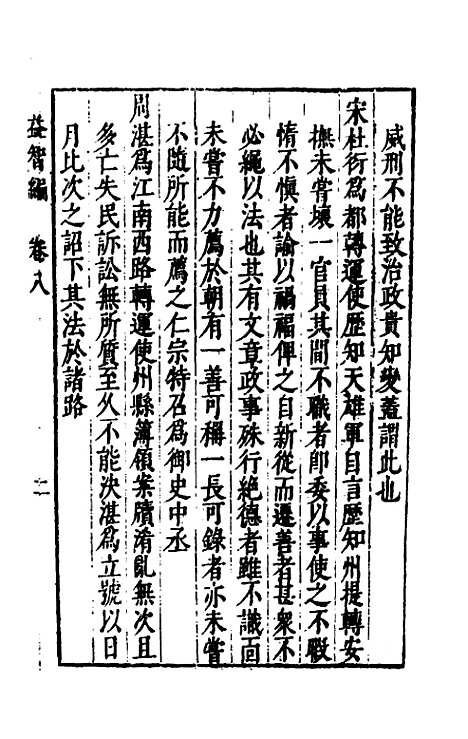 威刑不能致治政貴知變蓋謂此也
宋杜衍爲都轉運使歷知天雄軍自言歷知州提轉安
撫未嘗壞一官員其間不職者卽委以事使之不暇
惰不愼者諭以禍福俾之自新從而遷善者甚衆不
必繩以法也其有文章政事殊行絶德者雖不識面
未嘗不力薦於朝有一善可稱一長可錄者亦未嘗
不隨所能而薦之仁宗特召爲御史中丞
周湛爲江南西路轉運使州縣簿領案牘淆亂無次且
多亡失民訴訟無所質至久不能決湛爲立號以日
月比次之詔下其法於諸路
益智編 卷八 二